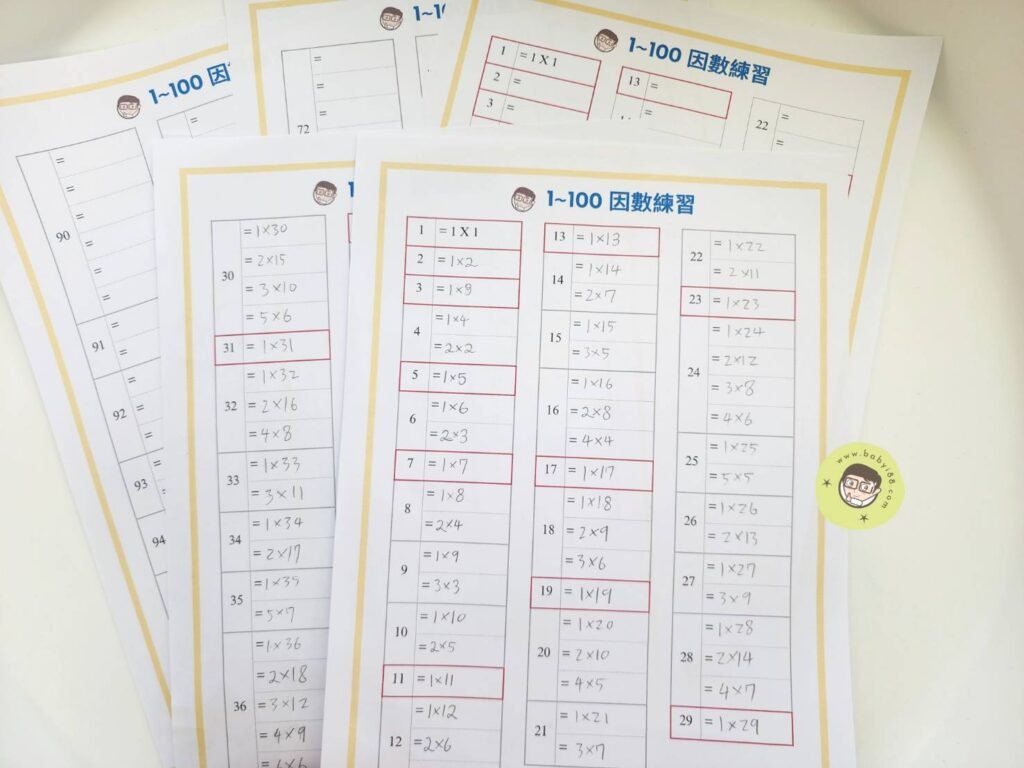 1~100 因數
90 =
=
=
=
=
=
91 =
=
92 =
=
=
93 =
=
94 =
1~1
=
=
72 =
1~100 因數練習
1 = 1 X 1
2 =
3 =
13 =
22 =
=
1
30 = 1×30
= 2×15
= 3×10
= 5×6
31 = 1×31
32 = 1×32
= 2×16
= 4×8
33 = 1×33
= 3×11
34 = 1×34
= 2×17
35 = 1×35
= 5×7
36 = 1×36
= 2×18
= 3×12
= 4×9
= 6×6
1~100 因數練習
1 = 1 X 1
2 = 1×2
3 = 1×3
4 = 1×4
= 2×2
5 = 1×5
6 = 1×6
= 2×3
7 = 1×7
8 = 1×8
= 2×4
9 = 1×9
= 3×3
10 = 1×10
= 2×5
11 = 1×11
12 = 1×12
= 2×6
13 = 1×13
14 = 1×14
= 2×7
15 = 1×15
= 3×5
16 = 1×16
= 2×8
= 4×4
17 = 1×17
18 = 1×18
= 2×9
= 3×6
19 = 1×19
20 = 1×20
= 2×10
= 4×5
21 = 1×21
= 3×7
22 = 1×22
= 2×11
23 = 1×23
24 = 1×24
= 2×12
= 3×8
= 4×6
25 = 1×25
= 5×5
26 = 1×26
= 2×13
27 = 1×27
= 3×9
28 = 1×28
= 2×14
= 4×7
29 = 1×29
www.babyi88.com